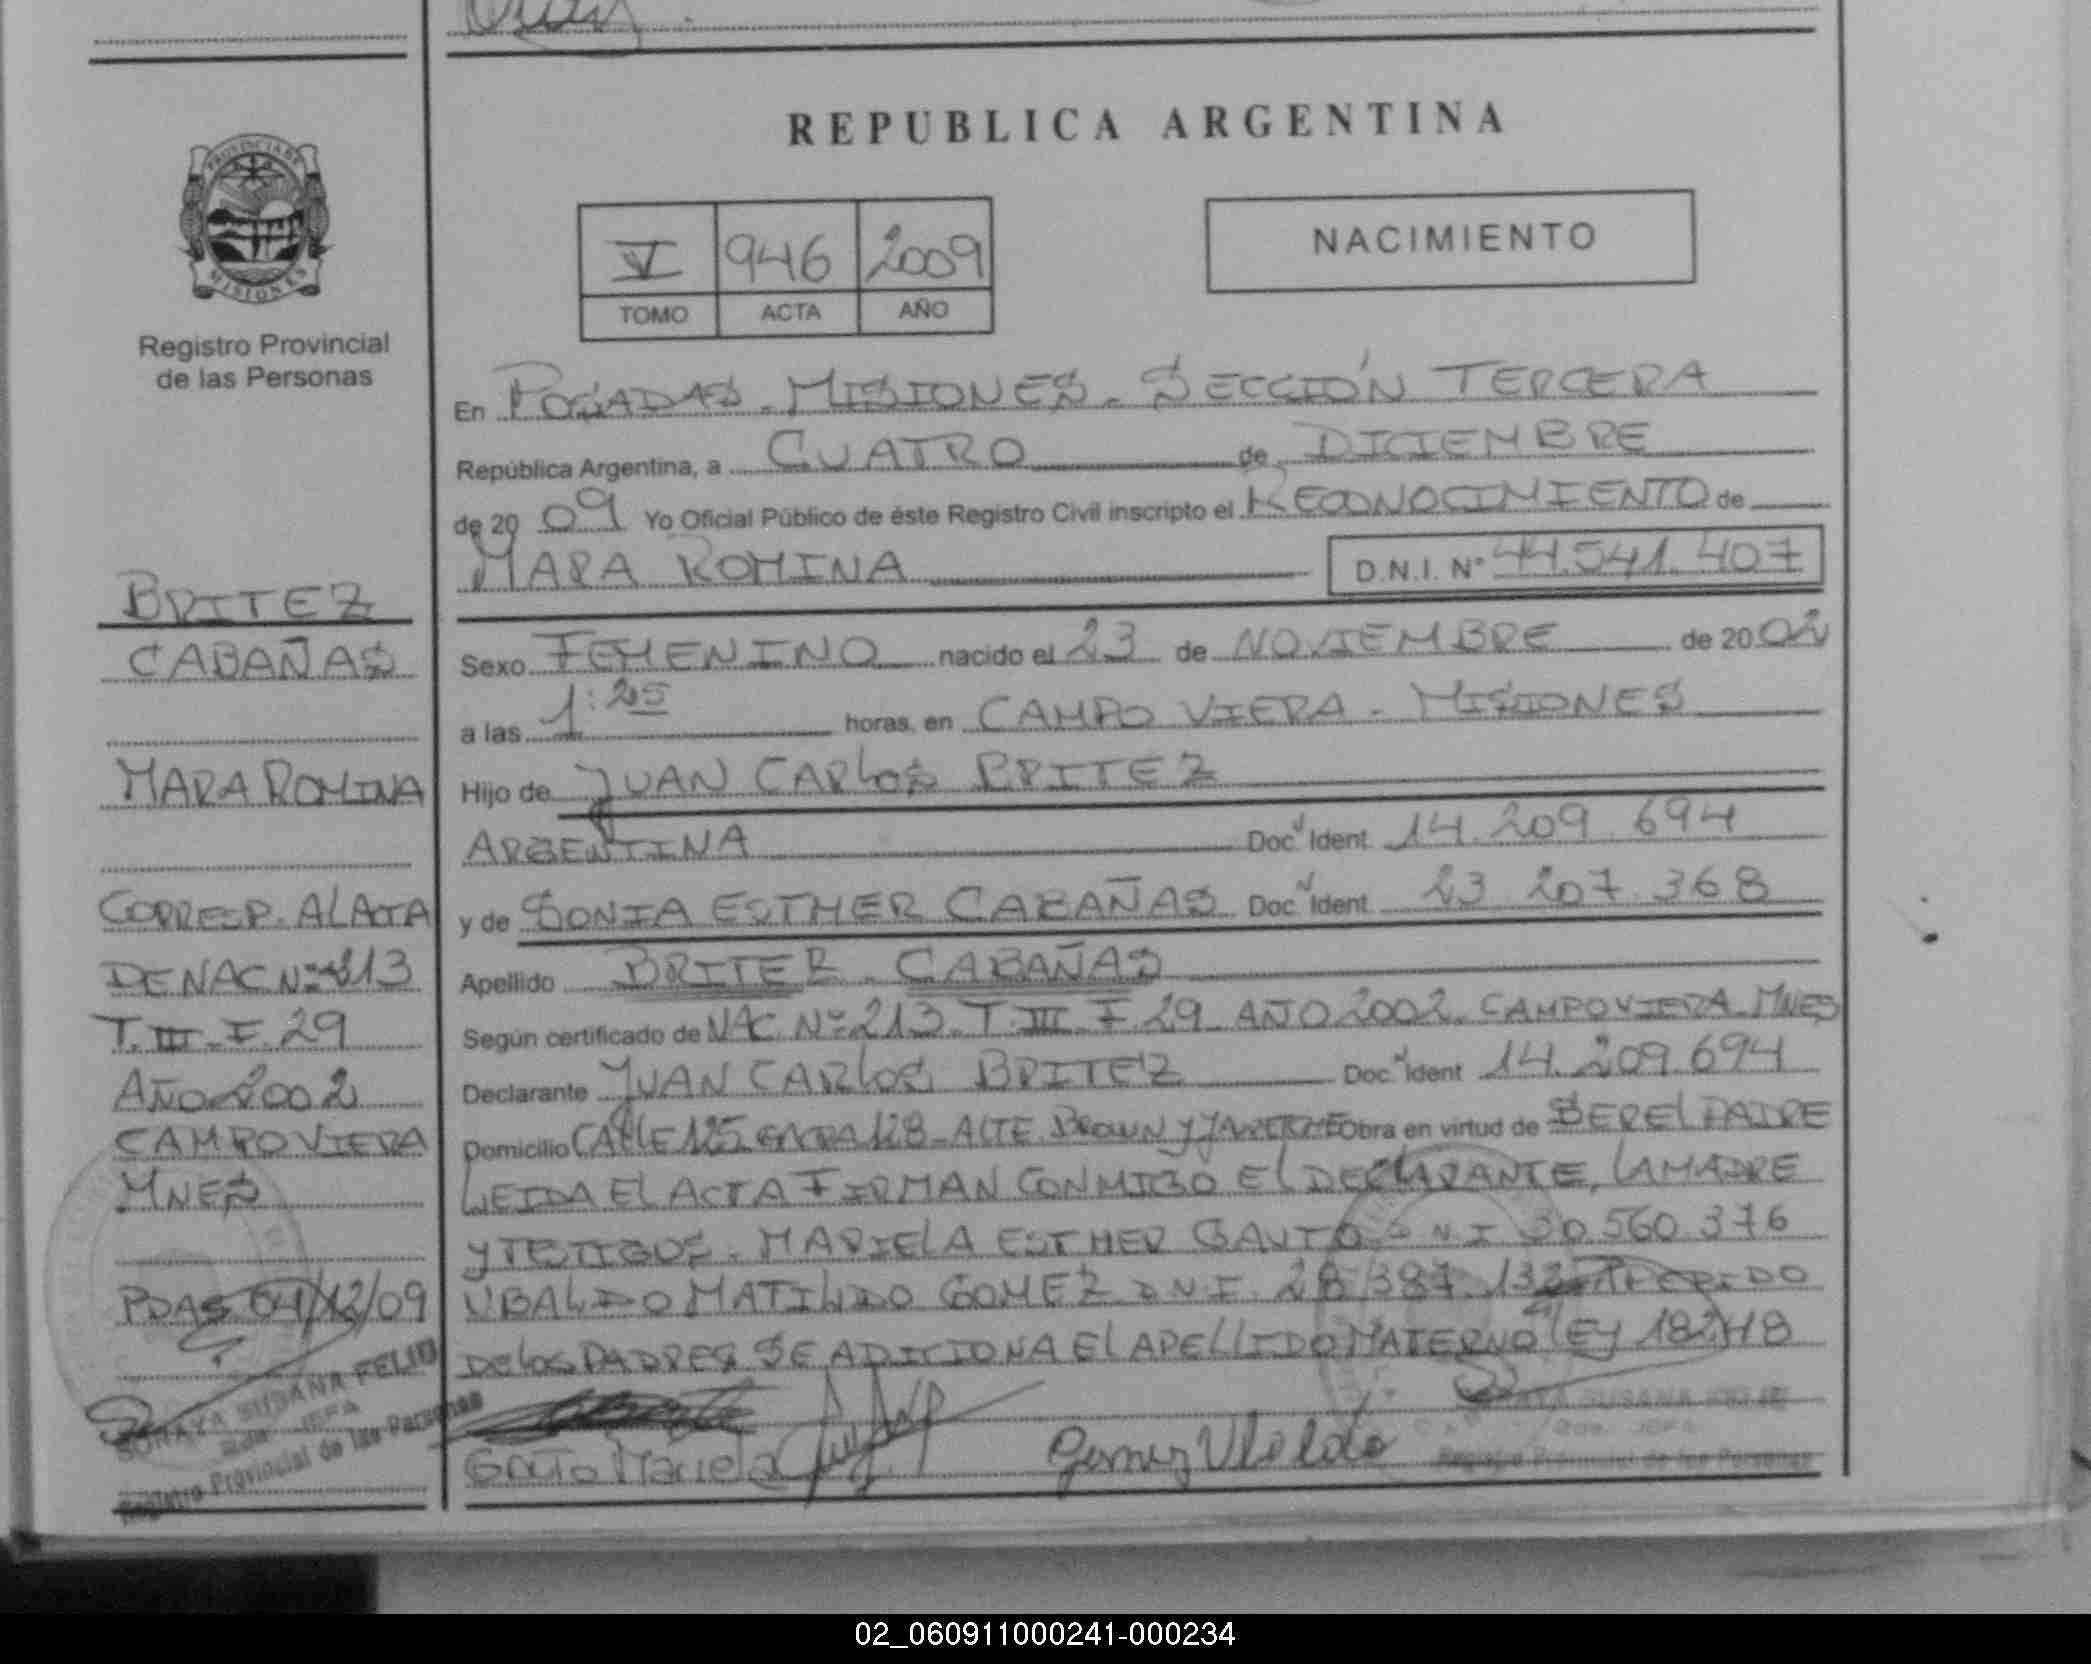 REPUBLICA ARGENTINA
PROVINCIA DE
MISIONES
Registro Provincial
de las Personas
V 946 2009
TOMO ACTA AÑO
NACIMIENTO
En POSADAS - MISIONES - SECCIÓN TERCERA
República Argentina, a CUATRO de DICIEMBRE
de 20 09 Yo Oficial Público de éste Registro Civil inscripto el RECONOCIMIENTO de
MARA ROMINA D.N.I. N° 44.541.407
Sexo FEMENINO nacido el 23 de NOVIEMBRE de 20 02
a las 1:25 horas, en CAMPO VIERA - MISIONES
Hijo de JUAN CARLOS BRITEZ
ARGENTINA Doc. Ident. 14.209.694
y de SONIA ESTHER CABAÑAS Doc. Ident. 23.207.368
Apellido BRITEZ - CABAÑAS
Según certificado de NAC. Nº 213 - T. III - F 29 AÑO 2002 - CAMPO VIERA - MNES
Declarante JUAN CARLOS BRITEZ Doc. Ident 14.209.694
Domicilio CALLE 125 128 - ALTE. BROWN Y Obra en virtud de SER EL PADRE
LEIDA EL ACTA FIRMAN CONMIGO EL DECLARANTE, LA MADRE
Y TETIGOS. MARIELA ESTHER GAUTO D.N.I 30.560.376
UBALDO MATILDO GOMEZ D.N.I. 28.387.132 - A PEDIDO
DE LOS PADRES SE ADICIONA EL APELLIDO MATERNO LEY 18248
Gauto Mariela
Gomez Ubaldo
SORAYA SUSANA FELIU
JEFA
Registro Provincial de las Personas
BRITEZ
CABAÑAS
MARA ROMINA
CORRESP. AL ACTA
DE NAC Nº 213
T. III - F. 29
AÑO 2002
CAMPO VIERA
MNES
PDAS 04/12/09
SORAYA SUSANA FELIU
JEFA
Registro Provincial de las Personas
02_060911000241-000234